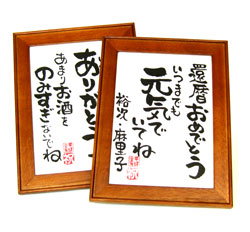 還暦おめでとう
いつまでも
元気で
いてね
裕次・麻里子
ありがとう
あまりお酒を
のみすぎないでね